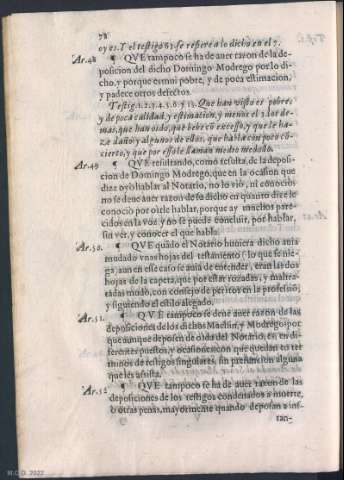 78
oyes. Y el testigo 63. se refiere a lo dicho en el 7.
Ar. 48 ¶ QVE tampoco se ha de auer razon de la de-
posicion del dicho Domingo Modrego por lo di-
cho, y porque es mui pobre, y de poca estimacion,
y padece otros defectos.
Testig. 1. 2. 3. 4. 5. 6. y 13. Que han visto es pobre,
y de poca calidad, y estimacion, y menos el 2 los de-
mas, que han oido, que bebe cõ excesso, y que le ha-
ze daño y algunos de ellos, que habla con poco cõ-
cierto, y que por esso le llaman medio modollo.
Ar. 49 ¶ QVE resultando, como resulta, de la deposi-
cion de Domingo Modrego, que en la ocasion que
dize oyò hablar al Notario, no lo viò, ni conociò,
no se deue auer razon de su dicho en quanto dize le
conociò por oirle hablar, porque ay muchos pare-
cidos en la voz, y no se puede concluir, por hablar,
sin ver, y conocer el que habla.
Ar. 50. ¶ QVE quãdo el Notario huuiera dicho auia
mudado vnas hojas del testamento (lo que se nie-
ga, aun en esse caso se auia de entender, eran las dos
hojas de la capeta, que por estar rozadas, y maltra-
tadas mudò, con consejo de peritos en la profesiõ,
y siguiendo el estilo alegado.
Ar. 51. ¶ QVE tampoco se deue auer razon de las
deposiciones de los dichos Machin, y Modrego: por
que aunque deposen de oidas del Notario, es en di-
ferentes puestos, y ocasiones con que quedan en ter
minos de testigos singulares, sin presuncion alguna
que les assista.
Ar. 52 ¶ QVE tampoco se ha de auer razon de las
deposiciones de los testigos condenados a muerte,
ò otras penas, mayormente quando deposan a ins-
tan-
M.C.D. 2022